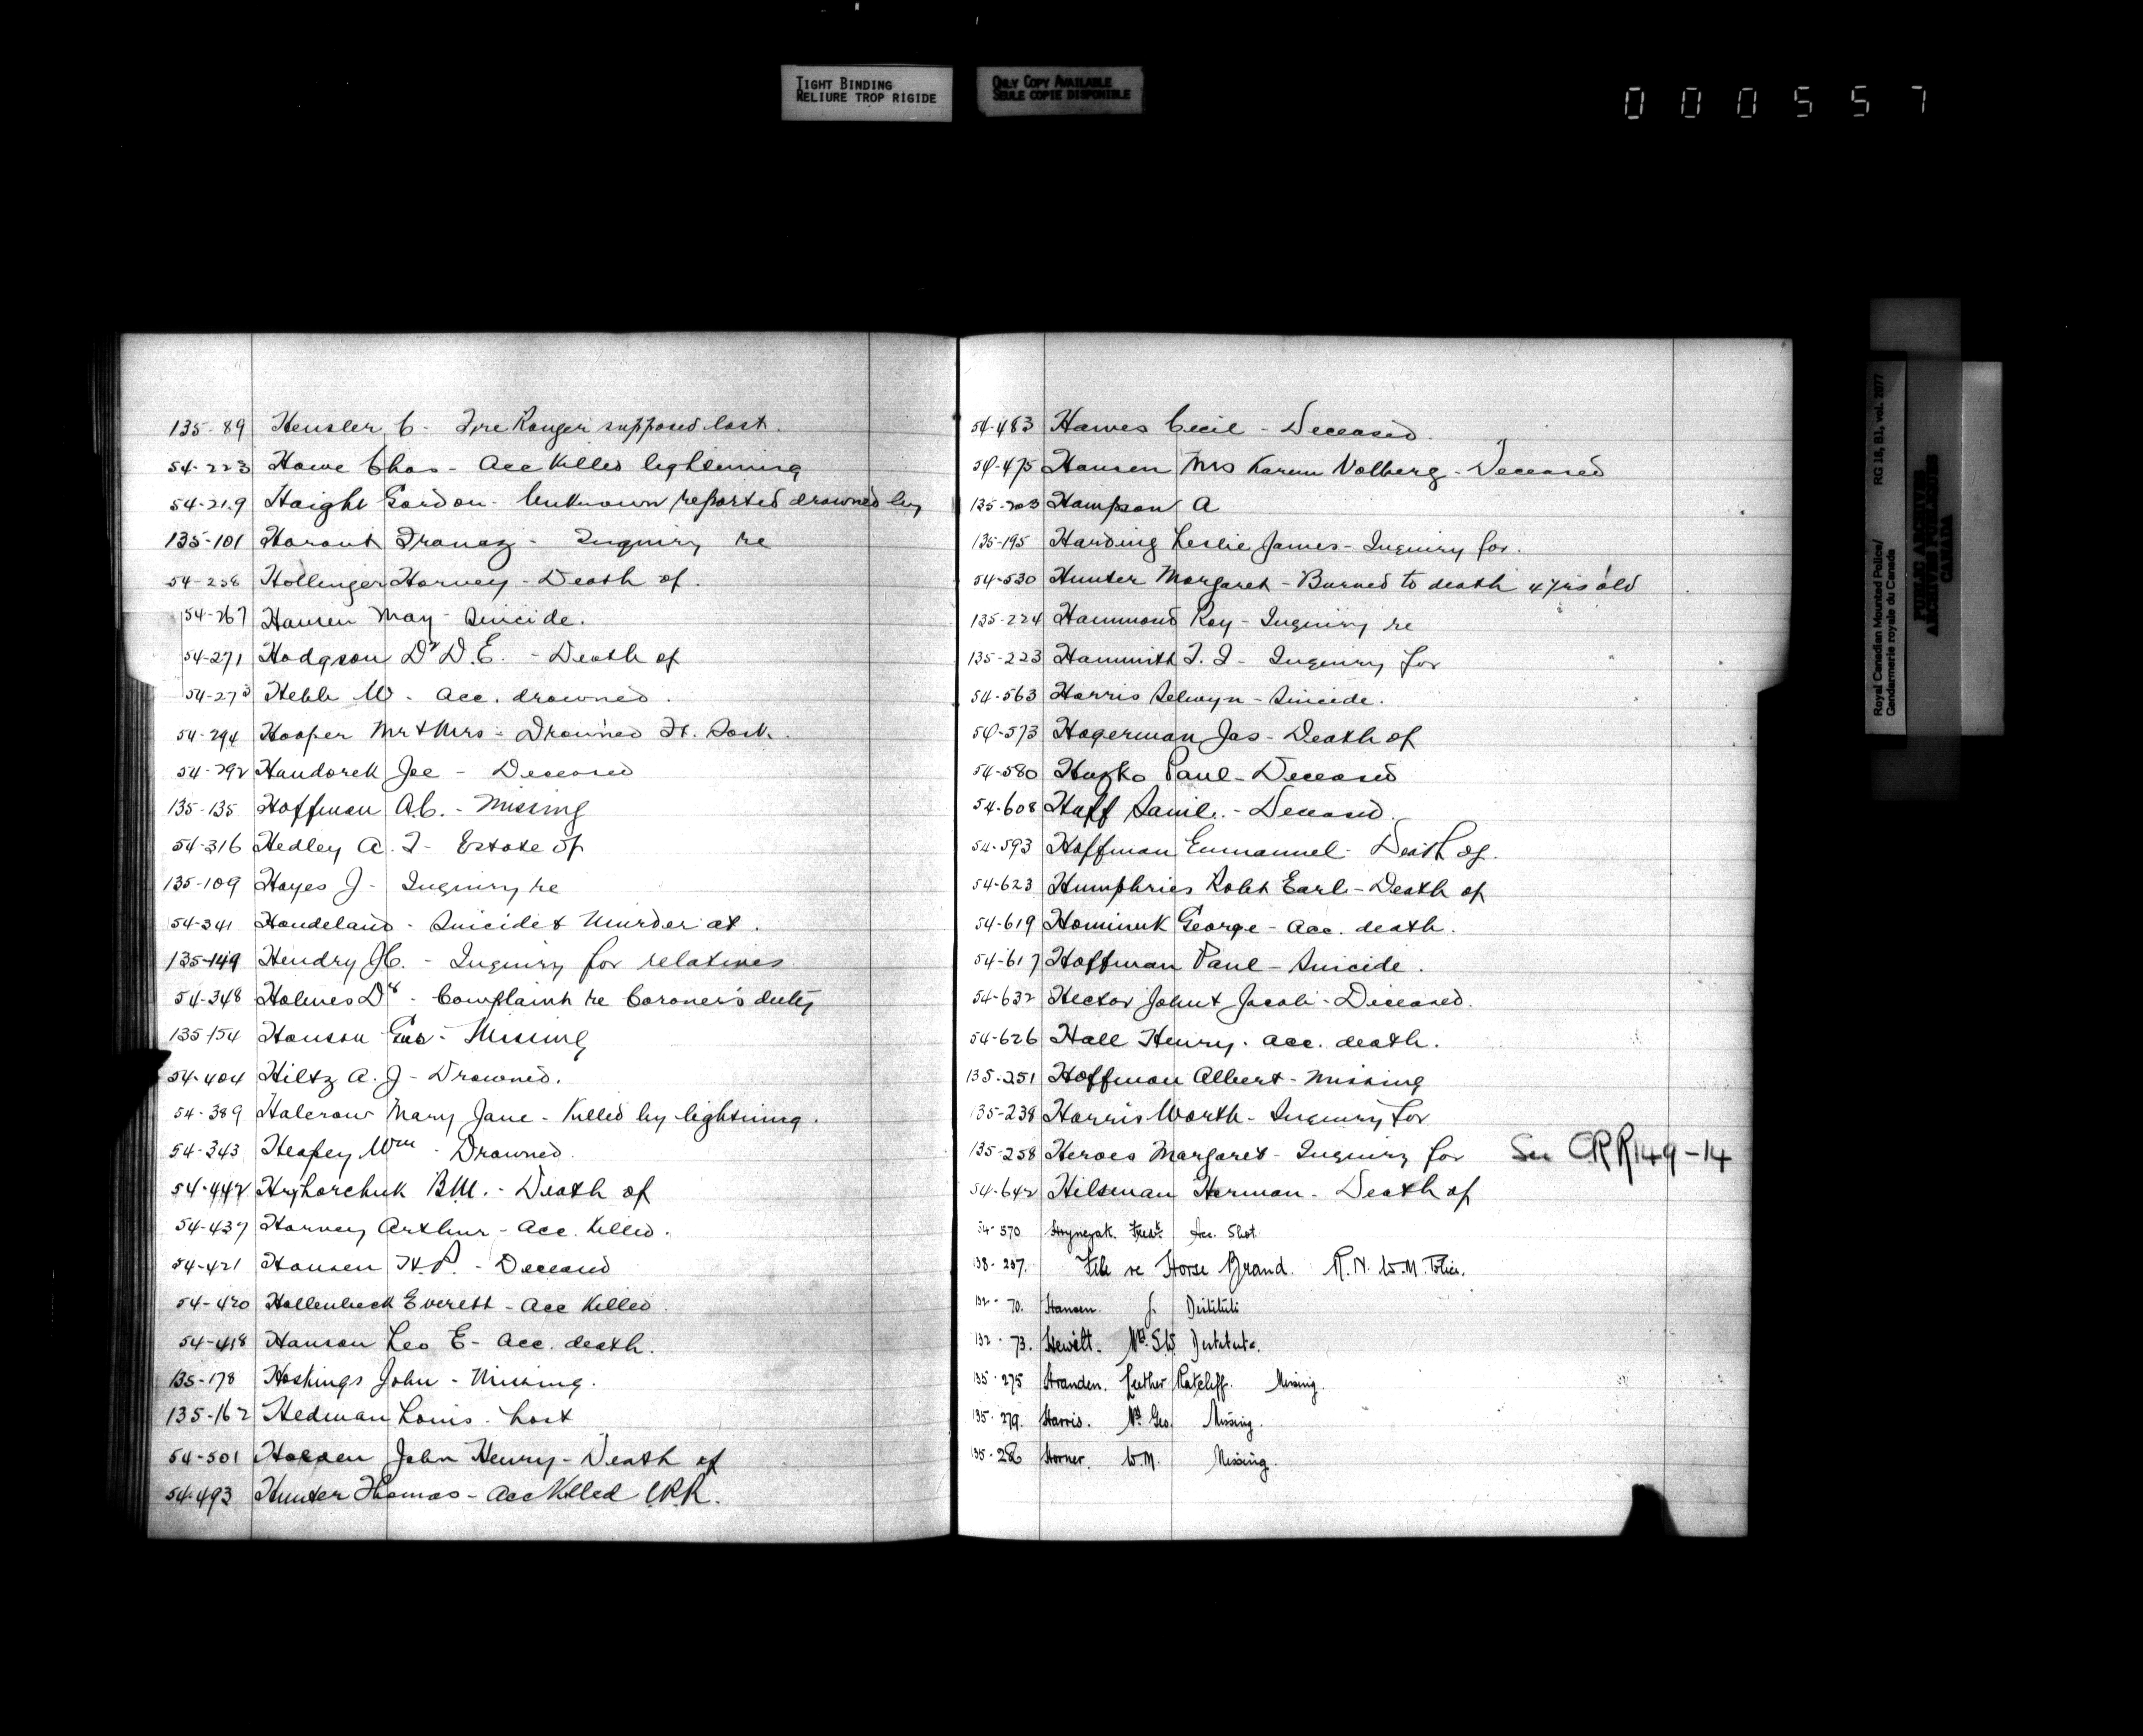 TIGHT BINDING
RELIURE TROP RIGIDE
ONLY COPY AVAILABLE
SEULE COPIE DISPONIBLE
000557
135-89 Hensler C - Fire Ranger supposed lost.
54-223 Howe Chas - Acc Killed lightening
54-219 Haight Gordon - Unknown reported drowned by
135-101 Inquiry re
54-258 Hollinger Harvey - Death of.
54-267 Hansen May - Suicide.
54-271 Hodgson Dr D.E. - Death of
54-273 Hebb W - Acc. drowned.
54-294 Hooper Mr & Mrs - Drowned Ft. Sask.
54-292 Handorek Joe - Deceased
135-135 Hoffman A.C. - Missing
54-316 Hedley A. F - Estate of
135-109 Hayes J - Inquiry re
54-341 Handeland - Suicide & Murder at.
135-149 Hendry J.C. - Inquiry for relatives
54-348 Holmes Dr - Complaint re Coroner's duty
135-154 Hanson Gus - Missing
54-404 Hiltz A. J - Drowned.
54-389 Halcrow Mary Jane - Killed by lightning.
54-343 Heapey Wm - Drowned.
54-442 Hryhorchuk - Death of
54-437 Harvey Arthur - Acc. Killed.
54-421 Hansen H.P. - Deceased
54-420 Hollenbeck Everett - Acc Killed.
54-418 Hanson Leo E - Acc. death.
135-178 Hoskings John - Missing.
135-162 Hedman Louis - Lost
54-501 John Henry - Death of
54-493 Hunter Thomas - Acc Killed C.P.R.
54-483 Hawes Cecil - Deceased.
54-475 Hansen Mrs Karen Volberg - Deceased
135-203 Hampson A
135-195 Harding Leslie James - Inquiry for.
54-530 Hunter Margaret - Burned to death 4 yrs old
135-224 Hammond Roy - Inquiry re
135-223 Hammith F. F - Inquiry for
54-563 Harris Selwyn - Suicide.
54-573 Hagerman Jas - Death of
54-580 Huzko Paul - Deceased
54-608 Huff Saml. - Deceased.
54-593 Hoffman Emmanuel - Death of.
54-623 Humphries Robt Earl - Death of
54-619 Hominuk George - Acc. death.
54-617 Hoffman Paul - Suicide.
54-632 Hector John & Jacob - Deceased.
54-626 Hall Henry. Acc. death.
135-251 Hoffman Albert - Missing
135-238 Harris Worth - Inquiry for
135-258 Heroes Margaret - Inquiry for See CRR 149-14
54-642 Hilseman Herman - Death of
54-570 Fredk. Acc. Shot.
138-207. File re Horse Brand. R.N.W.M. Police.
132-70. Hansen. J. Destitute
132-73. Hewitt. Mrs. S.W. Destitute.
135-275 Hranden. Luther Ratcliff. Missing.
135-279. Harris. Mrs. Geo. Missing.
135-28 Horner. W.M. Missing.
Royal Canadian Mounted Police/
Gendarmerie royale du Canada
RG 18, B1, vol. 2077
PUBLIC ARCHIVES
ARCHIVES PUBLIQUES
CANADA